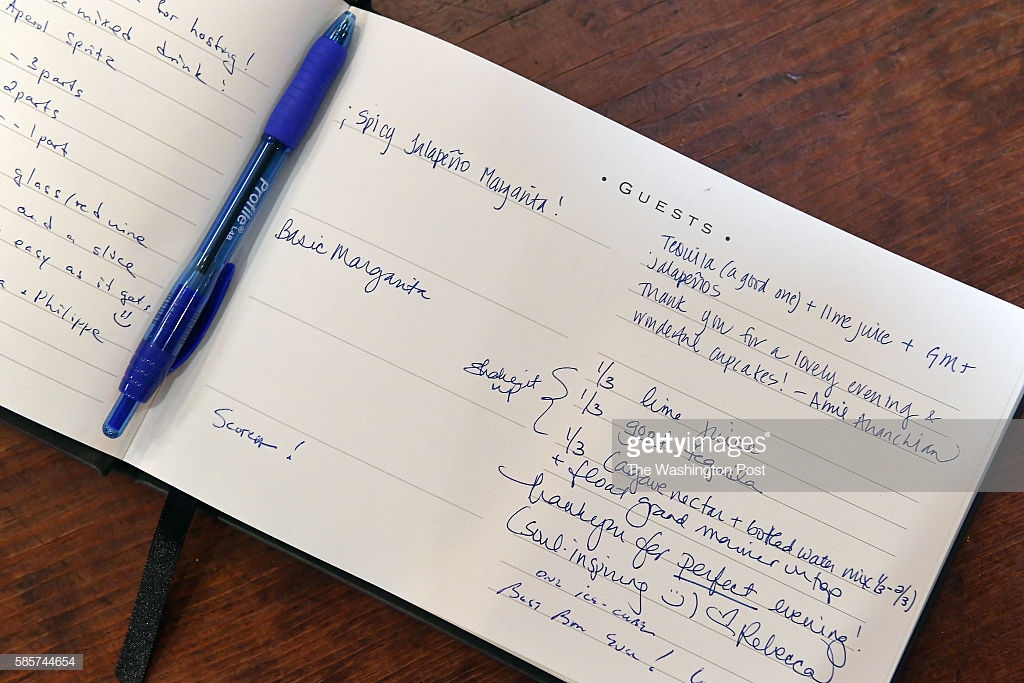 for hosting!
mixed drink!
Aperol Spritz
- 3 parts
2 parts
- - 1 part
glass/red wine
and a slice
easy as it gets
+ Philippe
Profile® LAB
¡Spicy Jalapeño Margarita!
Basic Margarita
Scorer!
• GUESTS •
Tequila (a good one) + lime juice + GM +
jalapeños
Thank you for a lovely evening &
wonderful cupcakes! - Amie Ananchian
Shake it
up
1/3 lime juice
1/3 good tequila
1/3 (agave nectar + bottled water mix 1/3-2/3)
+ float grand marnier on top
thank you for Perfect evening!
(soul-inspiring ) Rebecca
one ice-cube
Best Bon Ever!
gettyimages®
The Washington Post
585744654